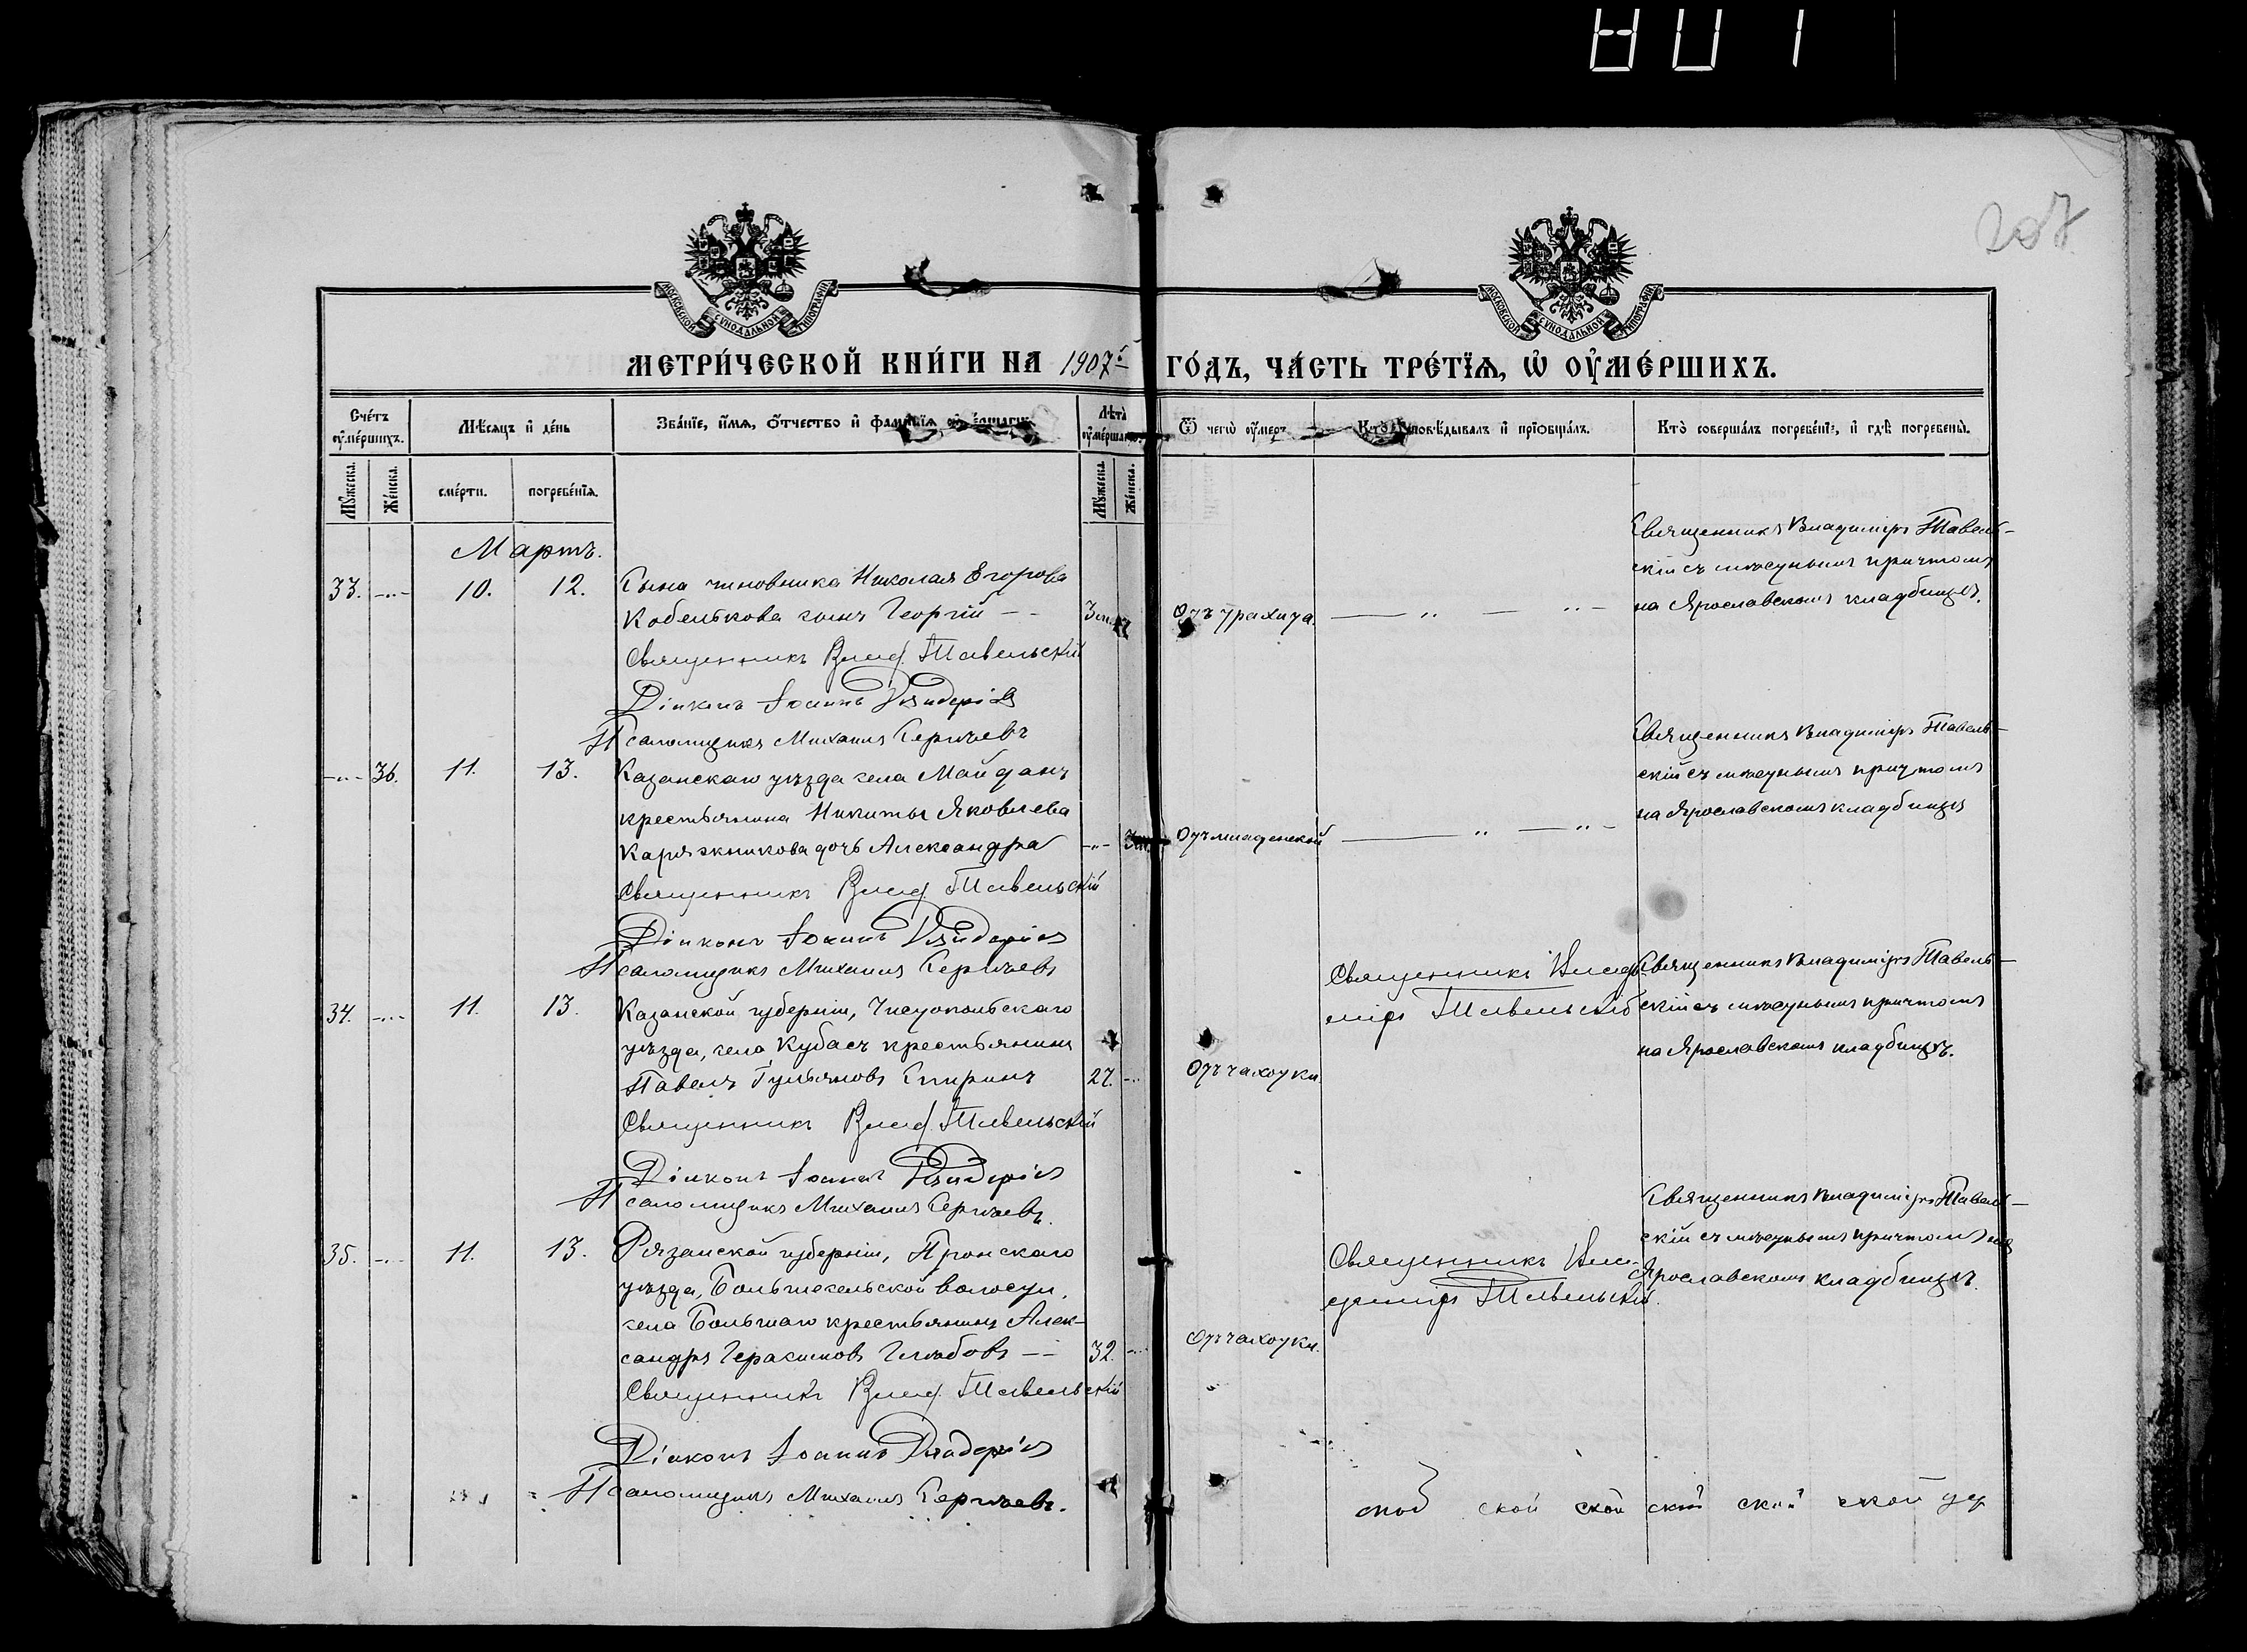 207
МОСКОВСКОЙ СѴНОДАЛЬНОЙ ТИПОГРАФІИ
МОСКОВСКОЙ СѴНОДАЛЬНОЙ ТИПОГРАФІИ
МЕТРИ́ЧЕСКОЙ КНИ́ГИ НА 1907 ГО́ДЪ, ЧА́СТЬ ТРЕ́ТЇѦ, Ѡ҆ ОУ҆МЕ́РШИХЪ.
Сче́тъ оу҆ме́ршихъ.
Мѣ́сяцъ и҆ де́нь
Зва́нїе, и҆́мѧ, ѻ҆́тчество и҆
Лѣта̀
Ѿ чегѡ̀ оу҆́меръ
Кто̀ и҆сповѣ́дывалъ и҆ прїѡбща́лъ.
Кто̀ соверша́лъ погребе́нїе, и҆ гдѣ̀ погребены̀.
Мꙋ́жеска.
Же́нска.
сме́рти.
погребе́нїѧ.
Мꙋ́жеска.
Же́нска.
Мартъ.
33. -"- 10. 12. Сына чиновника Николая Егорова
Кобелькова сынъ Георгій -- 3 м.
Священникъ Влад. Тавельскій
Діаконъ Іоаннъ
Псаломщикъ Михаилъ Сергѣевъ
Отъ трахита.
Священникъ Владиміръ Тавель-
скій съ мѣстнымъ причтомъ
на Ярославскомъ кладбищѣ.
-"- 36. 11. 13. Казанскаго уѣзда села Майданъ
крестьянина Никиты Яковлева
Карякникова дочь Александра -"-
Священникъ Влад. Тавельскій
Діаконъ Іоаннъ
Псаломщикъ Михаилъ Сергѣевъ
Отъ младенской
Священникъ Владиміръ Тавель-
скій съ мѣстнымъ причтомъ
на Ярославскомъ кладбищѣ
34. -"- 11. 13. Казанской губерніи, Чистопольскаго
уѣзда, села Кубасъ крестьянинъ
Павелъ Гурьяновъ Спиринъ 27. -"-
Священникъ Влад. Тавельскій
Діаконъ Іоаннъ
Псаломщикъ Михаилъ Сергѣевъ.
Отъ чахотки.
Священникъ Влади-
міръ Тавельскій
Священникъ Владиміръ Тавель-
скій съ мѣстнымъ причтомъ
на Ярославскомъ кладбищѣ.
35. -"- 11. 13. Рязанской губерніи, Пронскаго
уѣзда, Большесельской волости,
села Большаго крестьянинъ Алек-
сандръ Герасимовъ Глѣбовъ -- 32. -"-
Священникъ Влад. Тавельскій
Діаконъ Іоаннъ
Псаломщикъ Михаилъ Сергѣевъ.
Отъ чахотки.
Священникъ Вла-
диміръ Тавельскій.
Священникъ Владиміръ Тавель-
скій съ мѣстнымъ причтомъ на
Ярославскомъ кладбищѣ.
ской ской ской ской ской